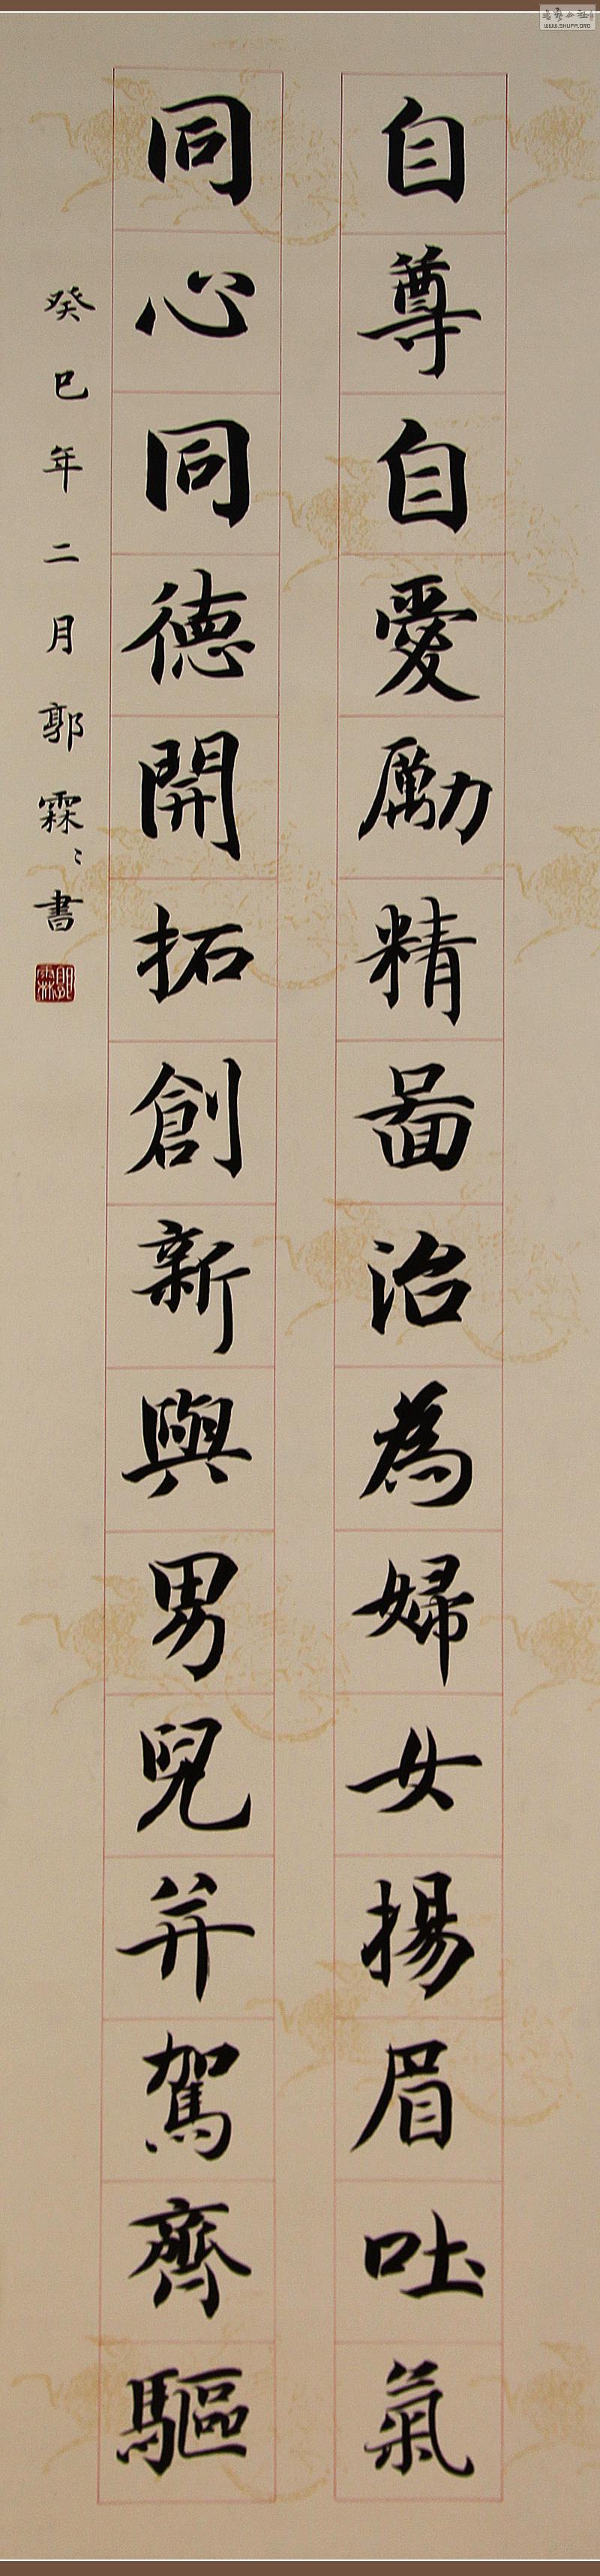 自尊自愛勵精啚治為婦女揚眉吐氣
同心同德開拓創新與男兒并駕齊驅
癸巳年二月郭霖〻書
郭霖
WWW.SHUFA.ORG